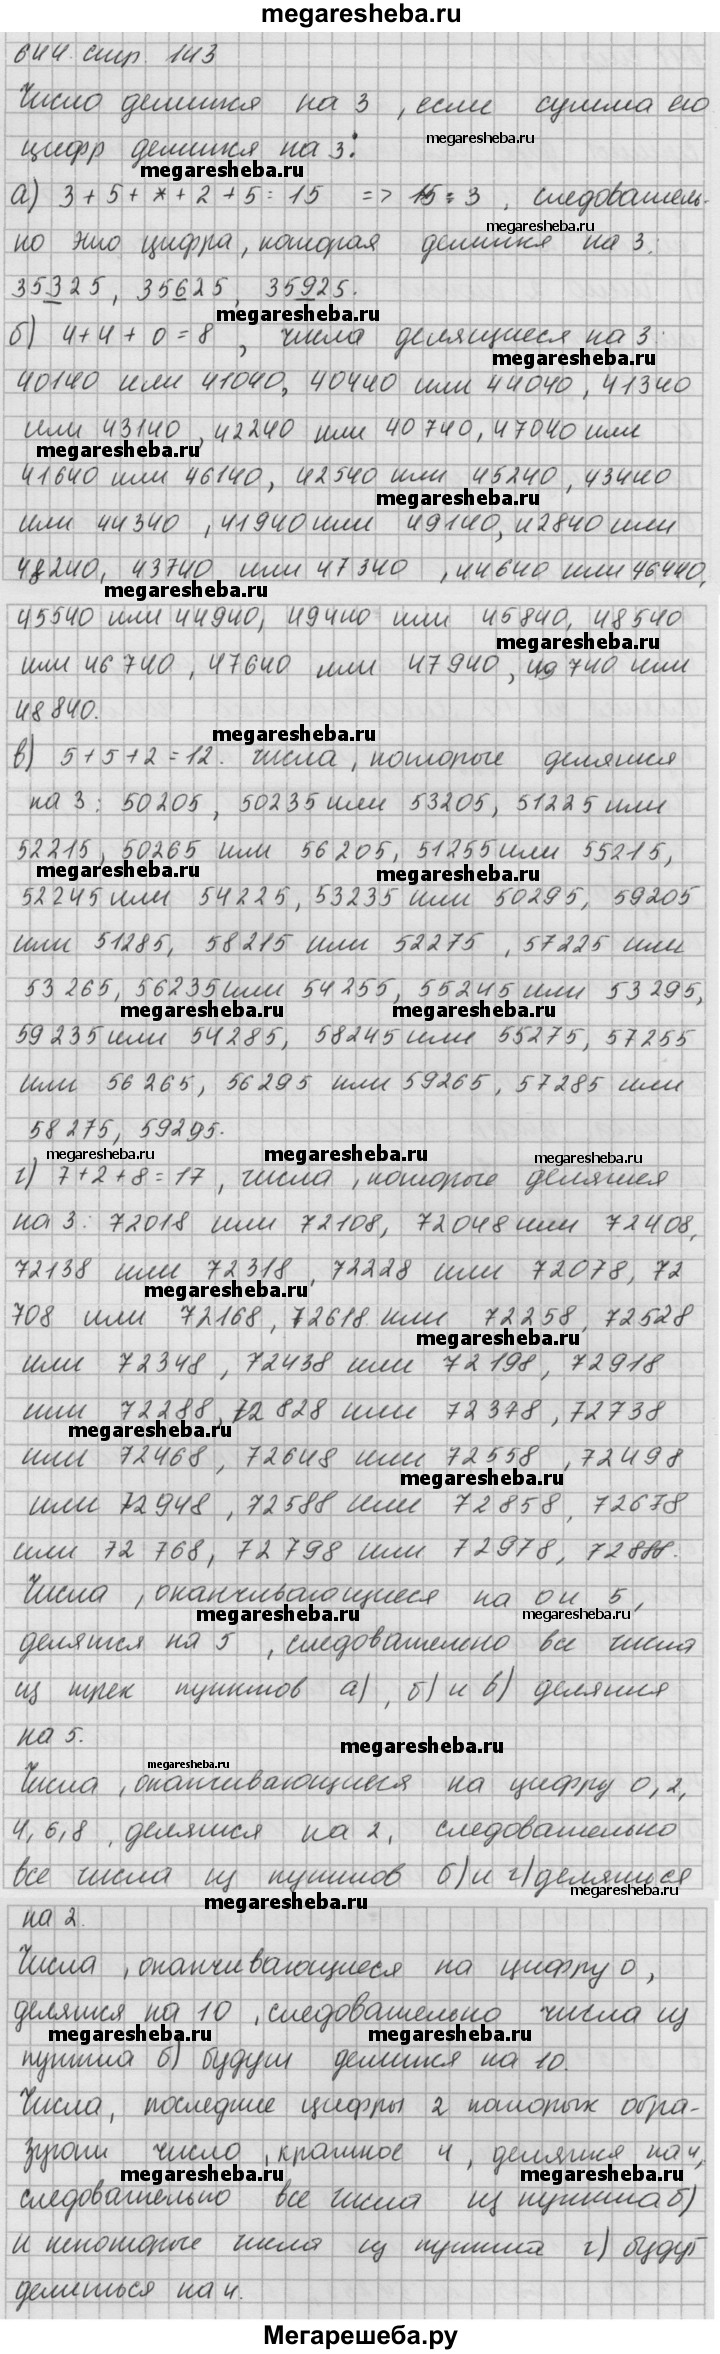 megaresheba.ru
644. стр. 143
Число делится на 3, если сумма его
megaresheba.ru
цифр делится на 3:
megaresheba.ru
а) 3+5+*+2+5=15 => 15:3, следователь-
megaresheba.ru
но это цифра, которая делится на 3:
35325, 35625, 35925.
megaresheba.ru
б) 4+4+0=8, числа делящиеся на 3:
megaresheba.ru
40140 или 41040, 40440 или 44040, 41340
или 43140, 42240 или 40740, 47040 или
megaresheba.ru
41640 или 46140, 42540 или 45240, 43440
megaresheba.ru
или 44340, 41940 или 49140, 42840 или
48240, 43740 или 47340, 44640 или 46440,
megaresheba.ru
45540 или 44940, 49440 или 45840, 48540
megaresheba.ru
или 46740, 47640 или 47940, 49740 или
48840.
megaresheba.ru
в) 5+5+2=12. числа, которые делятся
на 3: 50205, 50235 или 53205, 51225 или
52215, 50265 или 56205, 51255 или 55215,
megaresheba.ru megaresheba.ru
52245 или 54225, 53235 или 50295, 59205
или 51285, 58215 или 52275, 57225 или
53265, 56235 или 54255, 55245 или 53295,
megaresheba.ru megaresheba.ru
59235 или 54285, 58245 или 55275, 57255
или 56265, 56295 или 59265, 57285 или
58275, 59295.
megaresheba.ru megaresheba.ru megaresheba.ru
г) 7+2+8=17, числа, которые делятся
на 3: 72018 или 72108, 72048 или 72408,
72138 или 72318, 72228 или 72078, 72
megaresheba.ru
708 или 72168, 72618 или 72258, 72528
megaresheba.ru
или 72348, 72438 или 72198, 72918
или 72288, 72828 или 72378, 72738
megaresheba.ru
или 72468, 72648 или 72558, 72498
megaresheba.ru
или 72948, 72588 или 72858, 72678
или 72768, 72798 или 72978, 72888.
Числа, оканчивающиеся на 0 и 5,
megaresheba.ru megaresheba.ru
делятся на 5, следовательно все числа
из трех пунктов а), б) и в) делятся
на 5.
megaresheba.ru
megaresheba.ru
Числа, оканчивающиеся на цифру 0, 2,
4, 6, 8, делятся на 2, следовательно
все числа из пунктов б) и г) делятся
megaresheba.ru
megaresheba.ru
на 2.
Числа, оканчивающиеся на цифру 0,
делятся на 10, следовательно числа из
megaresheba.ru megaresheba.ru
пункта б) будут делится на 10.
Числа, последние цифры 2 которых обра-
зуют число, кратное 4, делятся на 4,
megaresheba.ru megaresheba.ru
следовательно все числа из пункта б)
и некоторые числа из пункта г) будут
делиться на 4.
Мегарешеба.ру